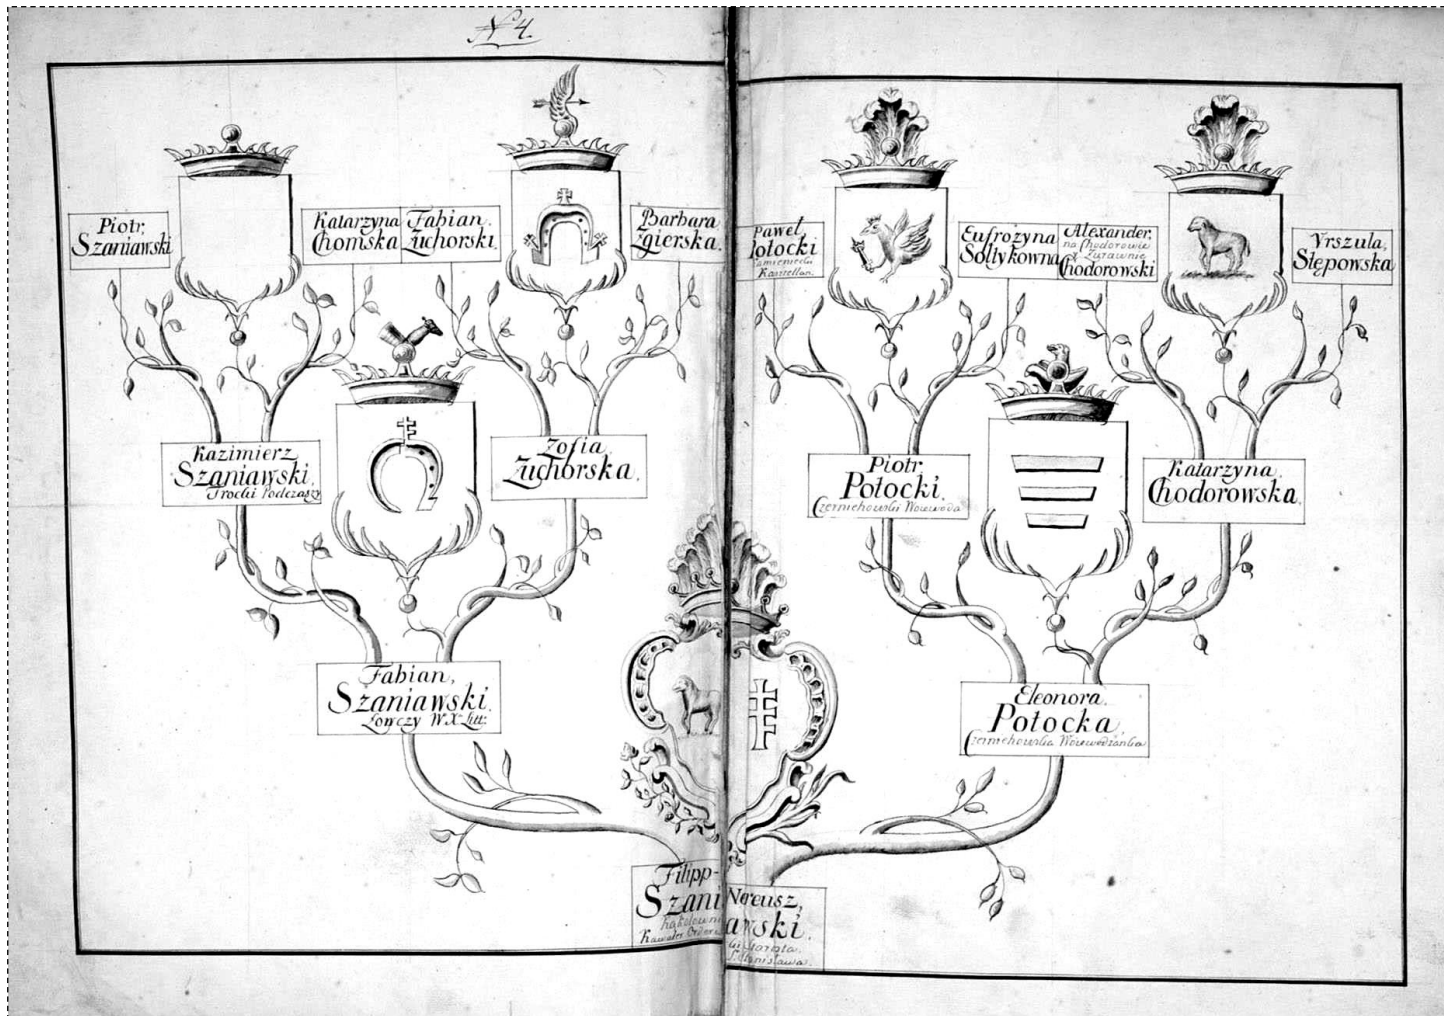 N 4.
Piotr.
Szaniawski
Katarzyna
Chomska
Fabian.
Żuchorski.
Barbara
Zgierska.
Paweł,
Potocki
Kamieniecki
Kasztellan.
Eufrożyna
Sołłykowna
Alexander.
na Chodorowie
y Żurawnie
Chodorowski
Vrszula,
Stępowska
Kazimierz
Szaniawski.
Trocki Podczaszy
Zofia.
Żuchorska.
Piotr.
Potocki.
Czerniehowski Woiewoda
Katarzyna.
Chodorowska.
Fabian,
Szaniawski.
Łowczy W. X. Litt:
Eleonora.
Potocka,
Czerniehowska Woiewodzanka
Filipp-Nereusz,
Szaniawski.
Starosta.
Kawaler Orderu S. Stanisława.